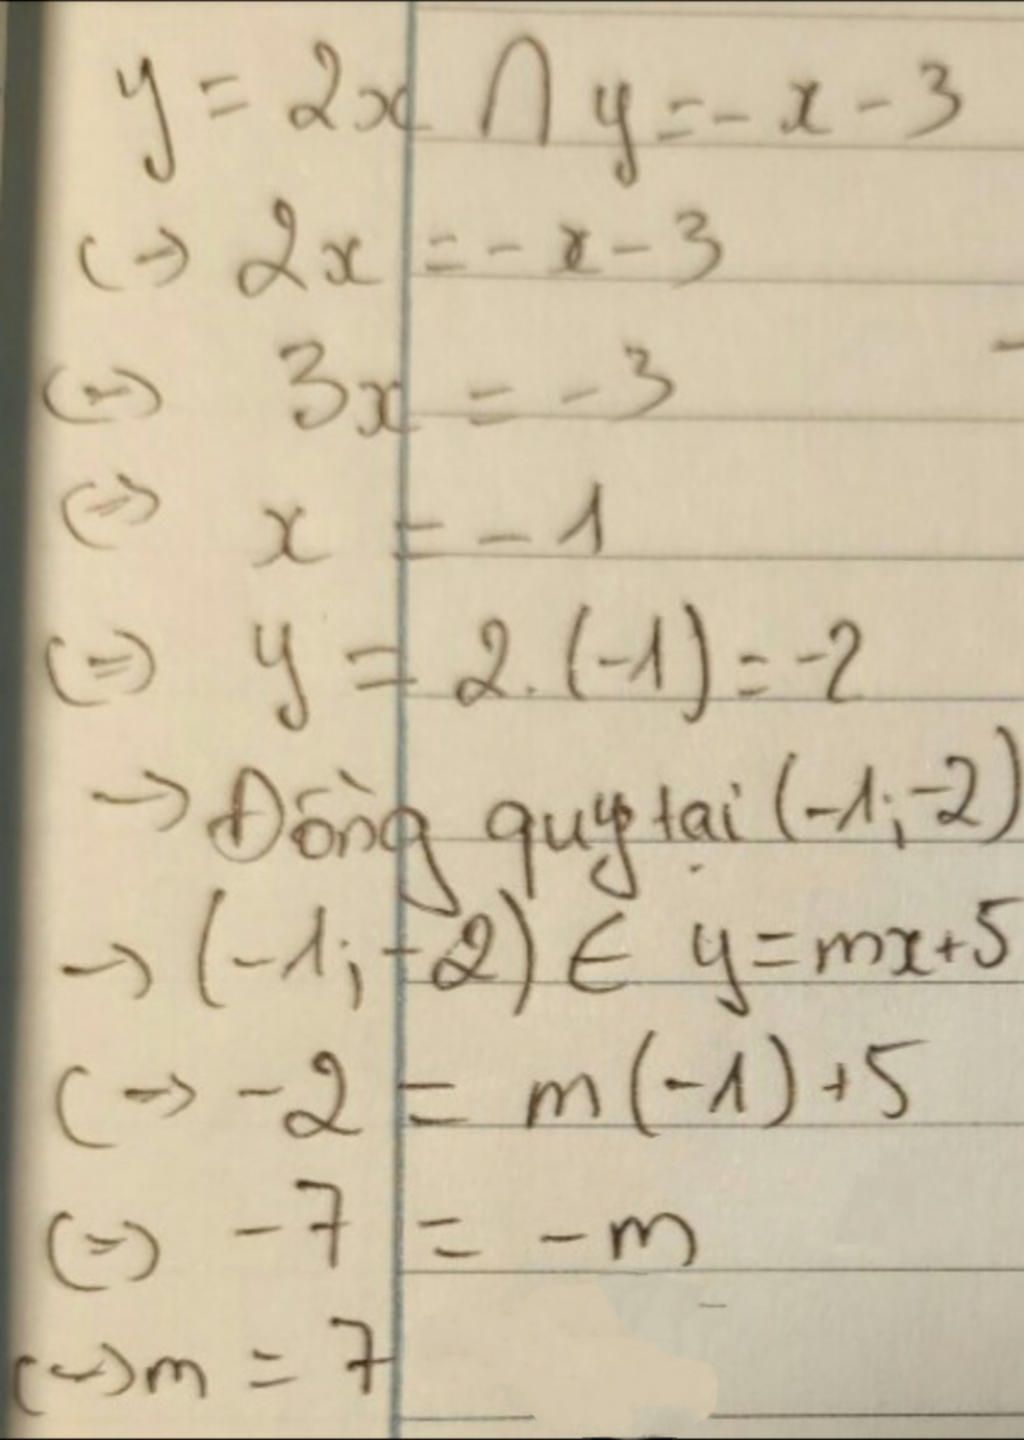 y = 2x ∩ y = - x - 3
<-> 2x = - x - 3
<=> 3x = - 3
<=> x = - 1
<=> y = 2. (-1) = -2
-> Đồng quy tại (-1; -2)
-> (-1; -2) ∈ y = mx + 5
<-> -2 = m (-1) + 5
<=> -7 = -m
<=> m = 7